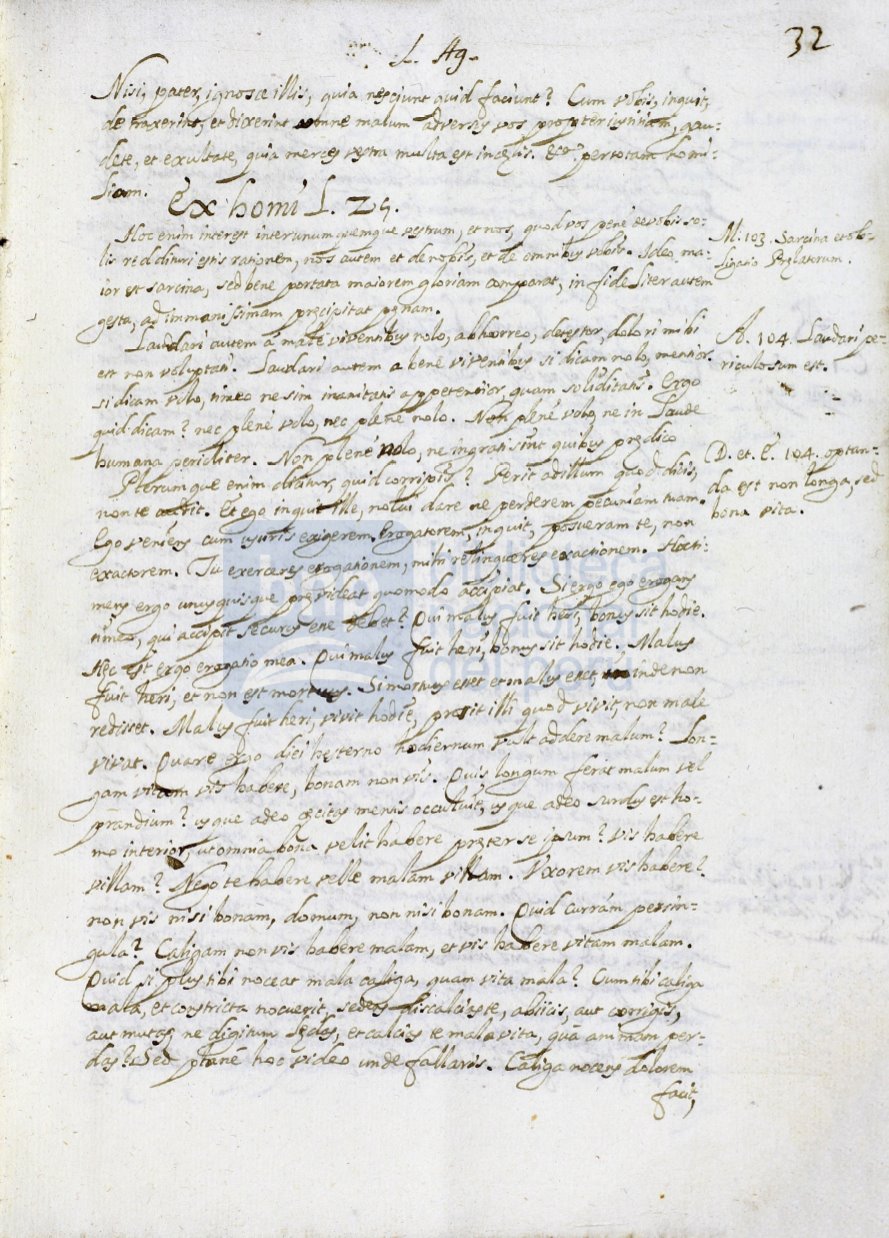 L. Ag.
32
Nisi, pater, ignosce illis, quia nesciunt quid faciunt? Cum vobis, inquit,
detraxerint, et dixerint omne malum adversus vos propter iustitiam, gau-
dete, et exultate, quia merces vestra multa est in cęlis. &c. per totam homi-
liam.
Ex homi L. 25.
Hoc enim interest inter unumquemque vestrum, et nos, quod vos pene de vobis so-
lis reddituri estis rationem, nos autem et de nobis, et de omnibus vobis. Ideo, ma-
ior et sarcina, sed bene portata maiorem gloriam comparat, infideliter autem
gesta, ad immanissimam pręcipitat pęnam.
M. 103. Sarcina et ob-
ligatio Prelatorum.
Laudari autem à male viventibus nolo, abhorreo, detestor, dolori mihi
est non voluptati. Laudari autem a bene viventibus si dicam nolo, mentior
si dicam volo, timeo ne sim inanitatis appetentior, quam soliditatis. Ergo
quid dicam? nec plenè volo, nec plenè nolo. Non plenè volo, ne in laude
humana pericliter. Non plenè nolo, ne ingrati sint quibus prędico
A. 104. Laudari pe-
riculosum est.
Plerumque enim dicitur, quid corripis? Perit ad illum quod dicis,
non te audit. Et ego inquit ille, nolui dare ne perderem pecuniam tuam.
Ego veniens cum usuris exigerem. Erogatorem, inquit, posueram te, non
exactorem. Tu exerceres erogationem, mihi relinqueres exactionem. Hoc ti-
mens ergo unusquisque pręvideat quomodo accipiat. Si ergo ego erogans
timeo, qui accipit securus esse debet? Qui malus fuit heri, bonus sit hodie.
Hęc est ergo erogatio mea. Qui malus fuit heri, bonus sit hodie. Malus
fuit heri, et non est mortuus. Si mortuus esset et malus esset, inde non
redisset. Malus fuit heri, vivit hodie, prosit illi quod vivit, non male
vivat. Quare ergo diei hęsterno hodiernum vult addere malum? Lon-
gam vitam vis habere, bonam non vis. Quis longum ferat malum vel
prandium? usque adeo cęcitas mentis occuluit, usque adeo surdus est ho-
mo interior, ut omnia bona velit habere pręter se ipsum? Vis habere
villam? Nego te habere velle malam villam. Uxorem vis habere?
non vis nisi bonam, domum, non nisi bonam. Quid curram per sin-
gula? Caligam non vis habere malam, et vis habere vitam malam.
Quid si plus tibi noceat mala caliga, quam vita mala? Cum tibi caliga
mala, et constricta nocuerit, sedes discalcias te, abiicis, aut corrigis,
aut mutas, ne digitum lędas, et calcias te mala vita, quâ animam per-
das? Sed planè hoc video unde fallaris. Caliga nocens dolorem
facit,
D. et. E. 104. optan-
da est non longa, sed
bona vita.
bnp biblioteca
nacional
del perú